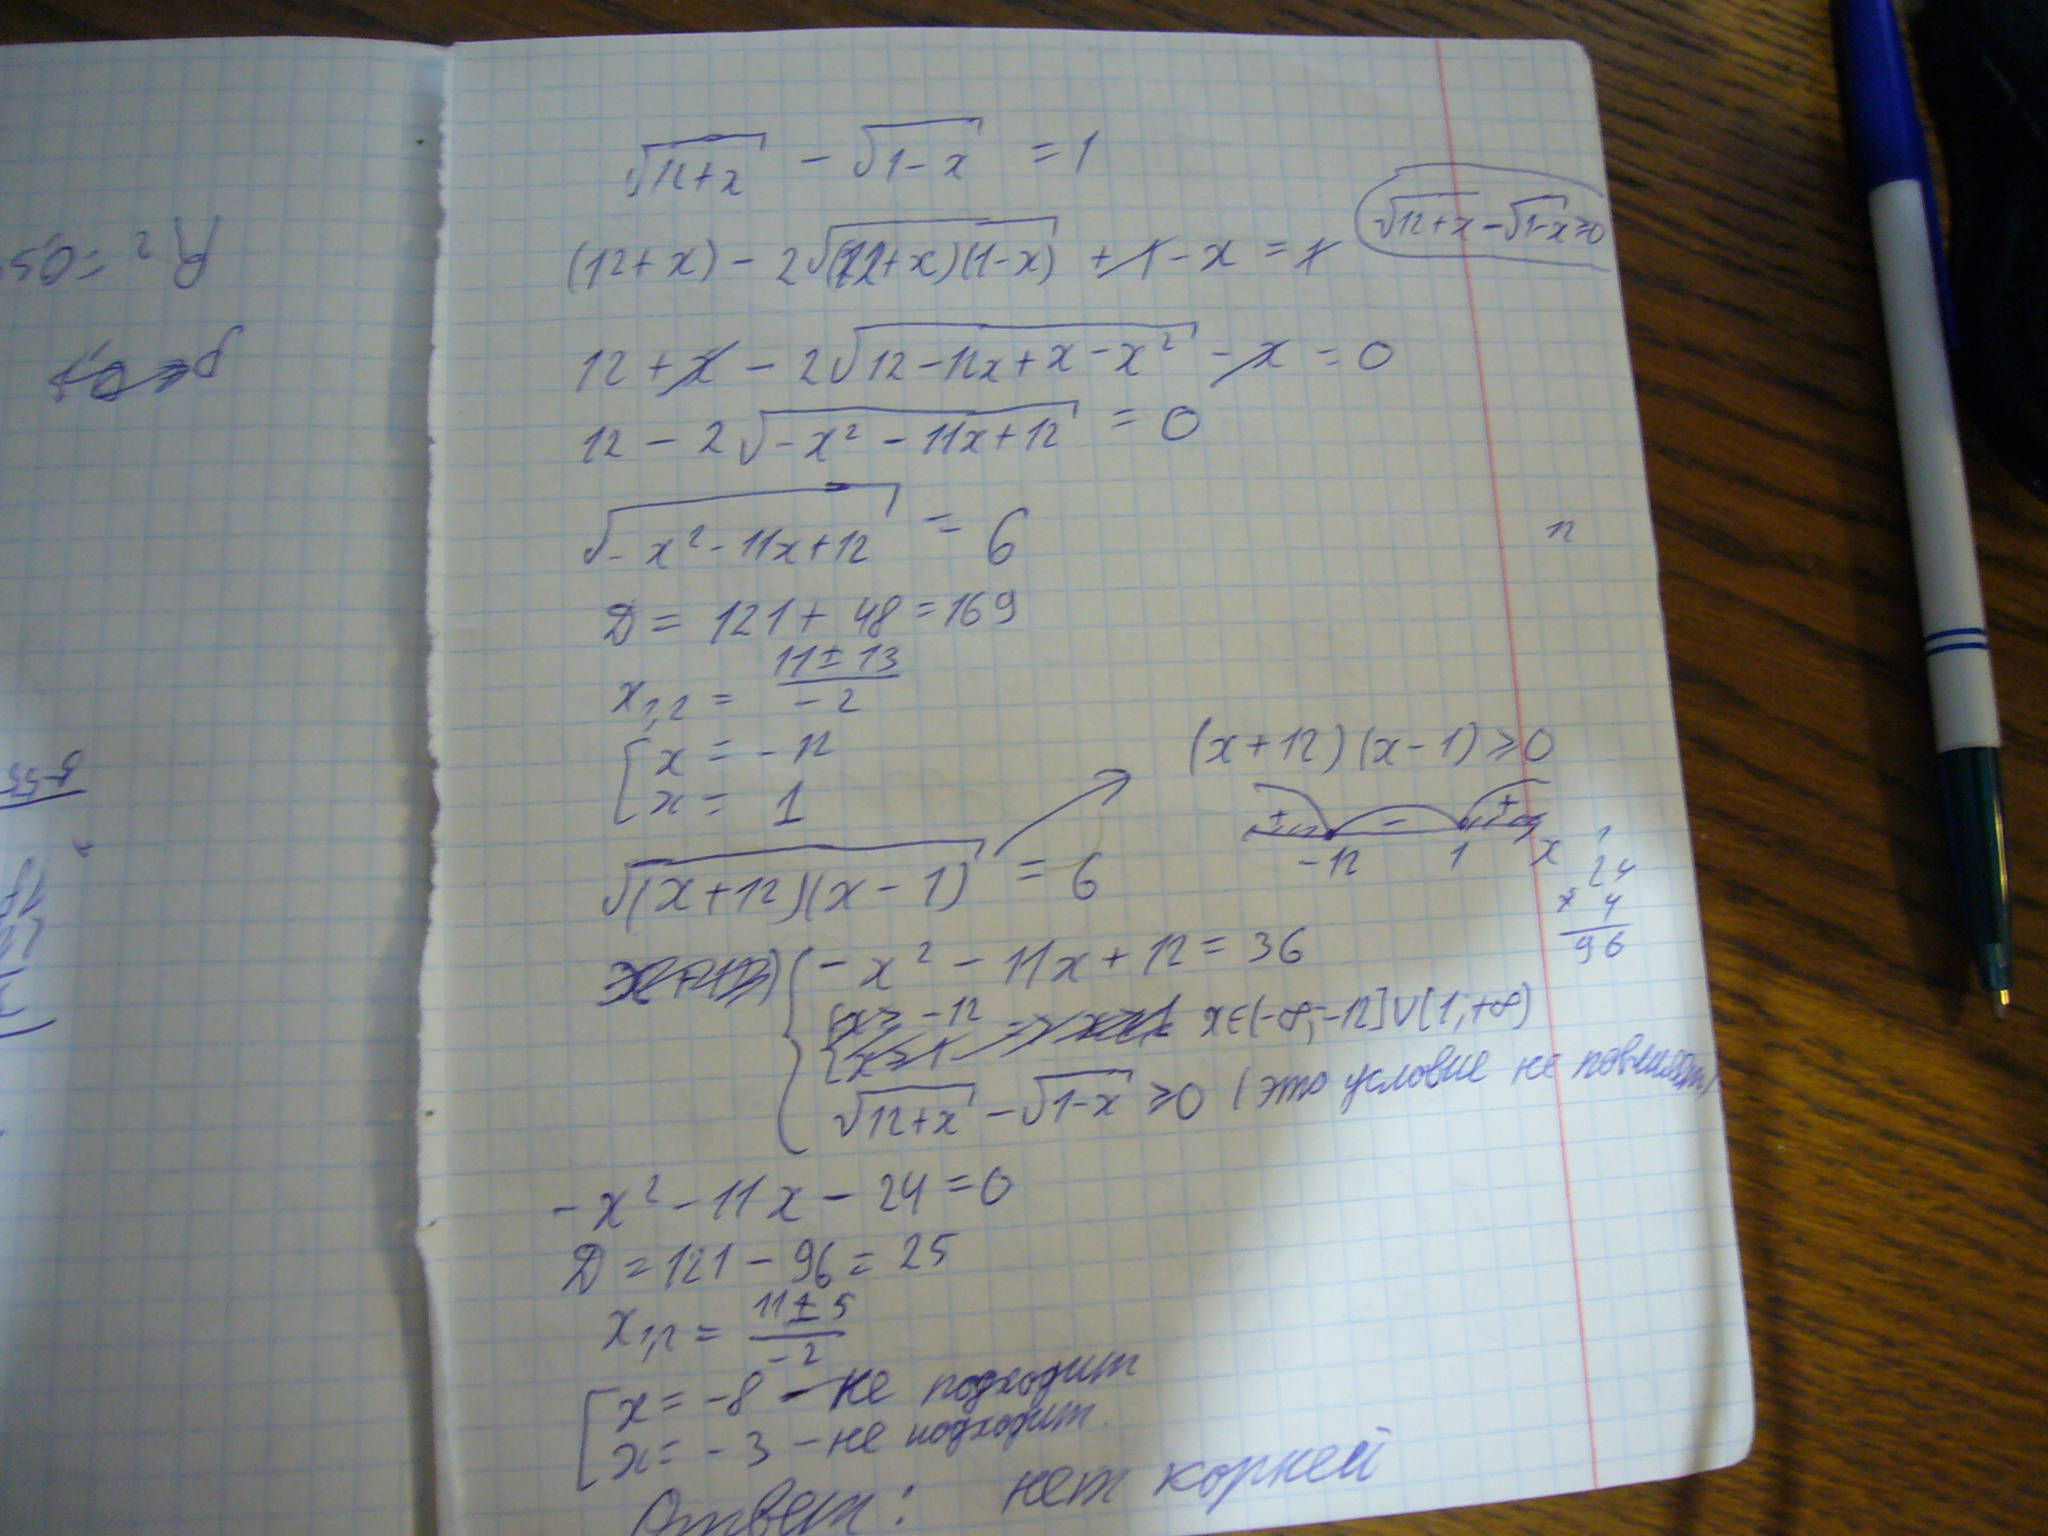 √12+x − √1−x = 1
√12+x − √1−x ≥ 0
(12+x) − 2√(12+x)(1−x) + 1 − x = 1
12 + x − 2√12−12x+x−x² − x = 0
12 − 2√−x² − 11x + 12 = 0
√−x² − 11x + 12 = 6
12
D = 121 + 48 = 169
x₁,₂ = 11 ± 13 / −2
x = −12
x = 1
(x+12)(x−1) ≥ 0
+ − +
−12 1 x
√(x+12)(x−1) = 6
1
24
× 4
96
−x² − 11x + 12 = 36
x ≥ −12
x ≥ 1 => x ≥ 1 x∈(−∞;−12]∪[1;+∞)
√12+x − √1−x ≥ 0 (это условие не
−x² − 11x − 24 = 0
D = 121 − 96 = 25
x₁,₂ = 11 ± 5 / −2
x = −8 − не подходит
x = −3 − не подходит.
Ответ: нет корней
R² = 0,5